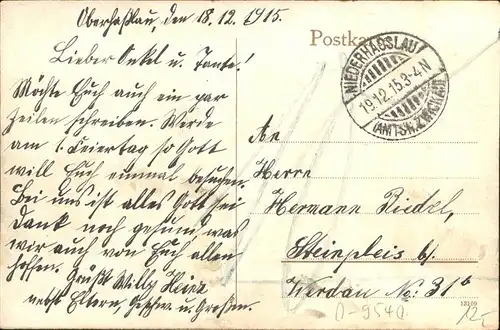 Oberhaßlau, den 18.12.1915.
Lieber Onkel u. Tante!
Möchte Euch auch ein par
Zeilen schreiben. Werde
am 1. Feiertag so Gott
will Euch einmal besuchen.
Bei uns ist alles Gott sei
Dank noch gesund was
wir auch von Euch allen
hoffen. Grüßt Willy Heinz
nebst Eltern, Geschw. u. Großen.
Postka
NIEDERHASSLAU
19.12.15.3-4N
(AMTSH. ZWICKAU)
An
Herrn
Hermann Riedel,
Steinpleis b/.
Werdau No: 31b
13109
D-9540
12,-